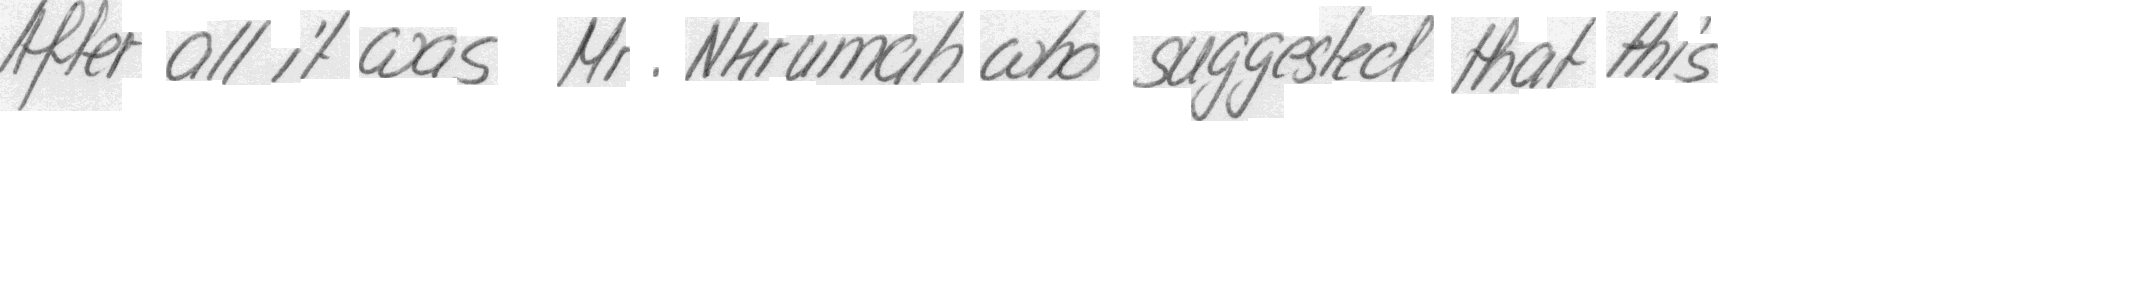 After all it was Mr. Nkrumah who suggested that this